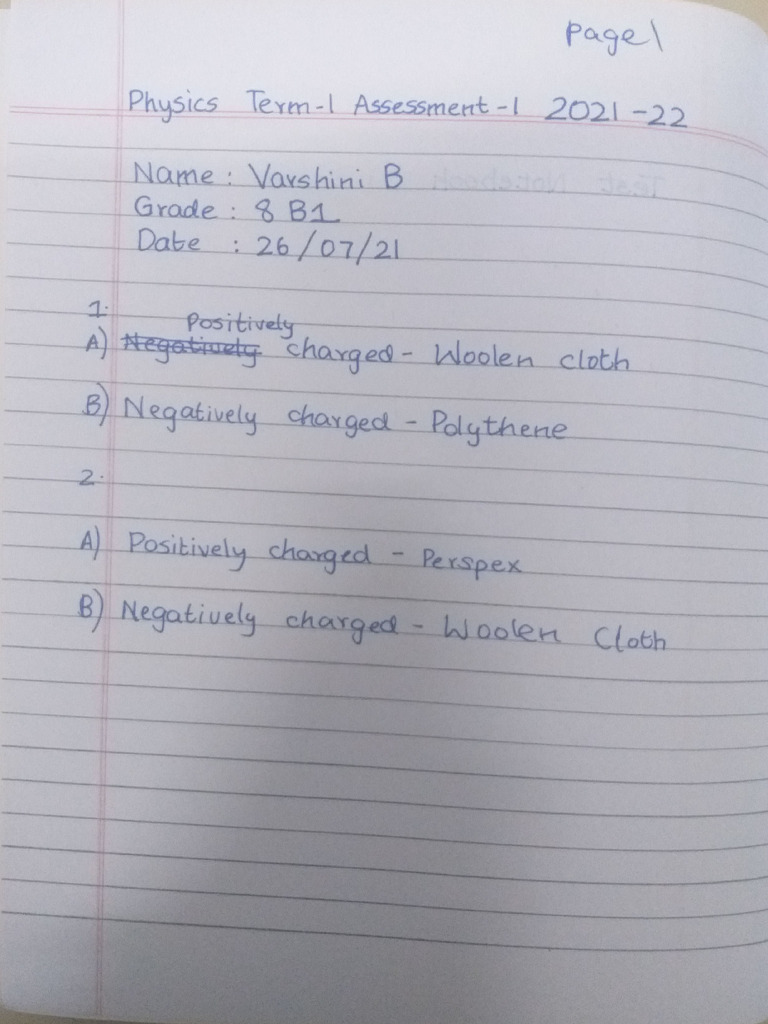 page 1
Physics Term-1 Assessment-1 2021-22
Name: Varshini B
Grade: 8 B1
Date : 26/07/21
1.
Positively
A) Negatively charged - Woolen cloth
B) Negatively charged - Polythene
2.
A) Positively charged - Perspex
B) Negatively charged - Woolen Cloth